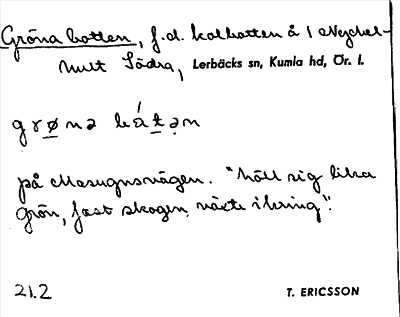 Gröna botten, f.d. kolbotten å 1 Nyckel-
hult Södra, Lerbäcks sn, Kumla hd, Ör. l.
grønə bátən
på Masugnsvägen. "höll sig lika
grön, fast skogen växte ikring".
21.2 T. ERICSSON